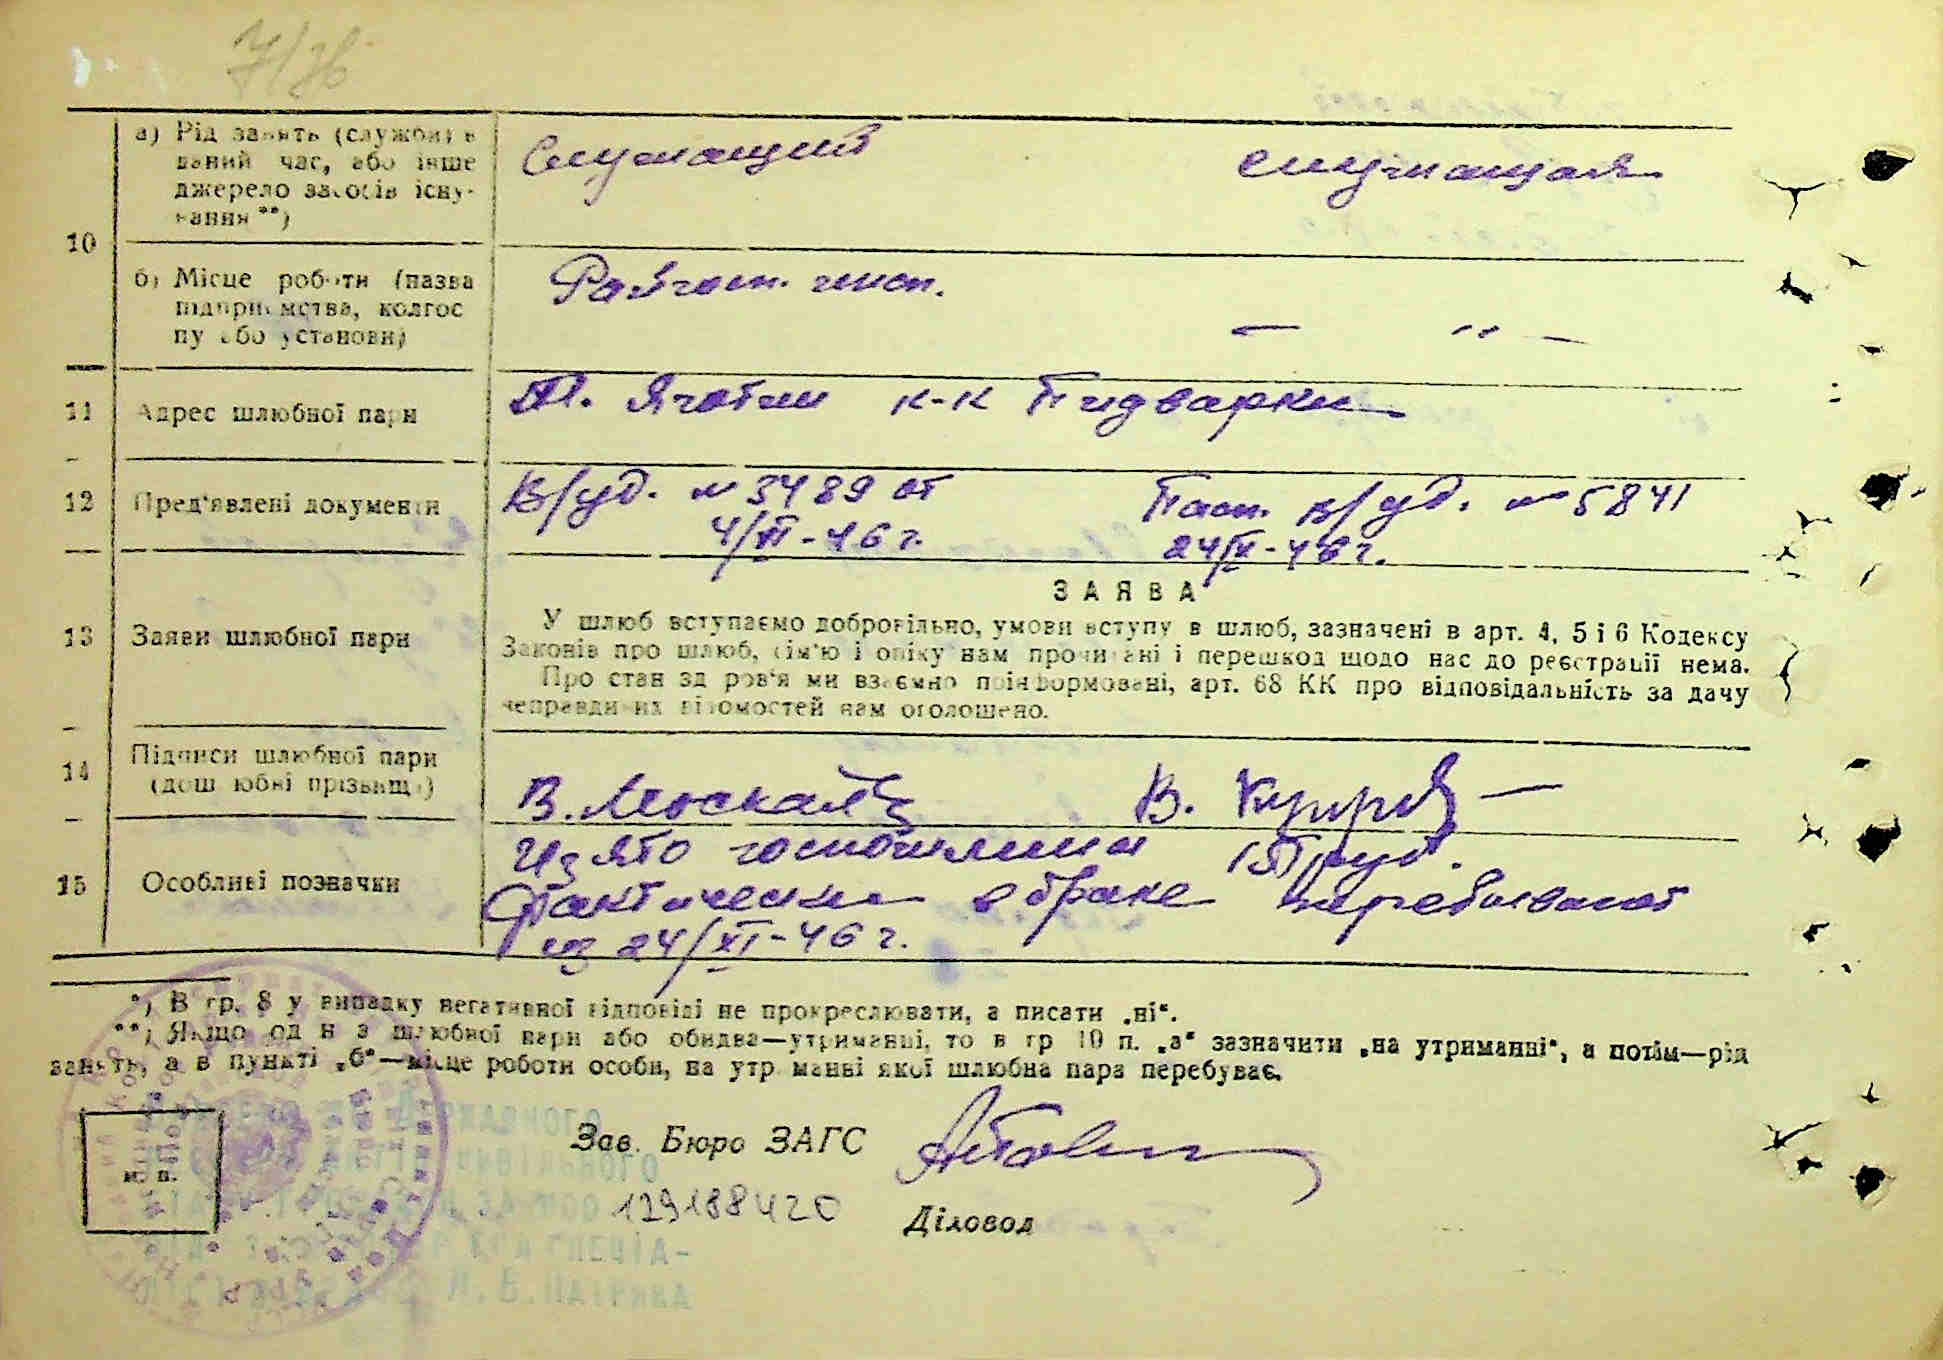 7/
10
а) Рід занять (служби) в
даний час, або інше
джерело засобів існу-
вання **)
Служащий
служащая
б) Місце роботи (назва
підприємства, колгос
пу або установи)
— " —
11
Адрес шлюбної пари
М. Яготин к-к Пидварки
12
Пред'явлені документи
В/уд. № 3489 от
4/XI-46 г.
Пасп. в/уд. № 5841
24/XI-46 г.
13
Заяви шлюбної пари
ЗАЯВА
У шлюб вступаємо добровільно, умови вступу в шлюб, зазначені в арт. 4, 5 і 6 Кодексу
Законів про шлюб, сім'ю і опіку нам прочитані і перешкод щодо нас до реєстрації нема.
Про стан здоров'я ми взаємно поінформовані, арт. 68 КК про відповідальність за дачу
неправдивих відомостей нам оголошено.
14
Підписи шлюбної пари
(дошлюбні прізвища)
В.
В.
15
Особливі позначки
Изято госпошлини 15 руб.
Фактически в браке перебывают
из 24/XI-46 г.
*) В гр. 8 у випадку негативної відповіді не прокреслювати, а писати „ні".
**) Якщо один з шлюбної пари або обидва—утриманці, то в гр 10 п. „а" зазначити „на утриманні", а потім—рід
занять, а в пункті „б"—місце роботи особи, на утриманні якої шлюбна пара перебуває.
М. П.
Зав. Бюро ЗАГС
129188420
Діловод